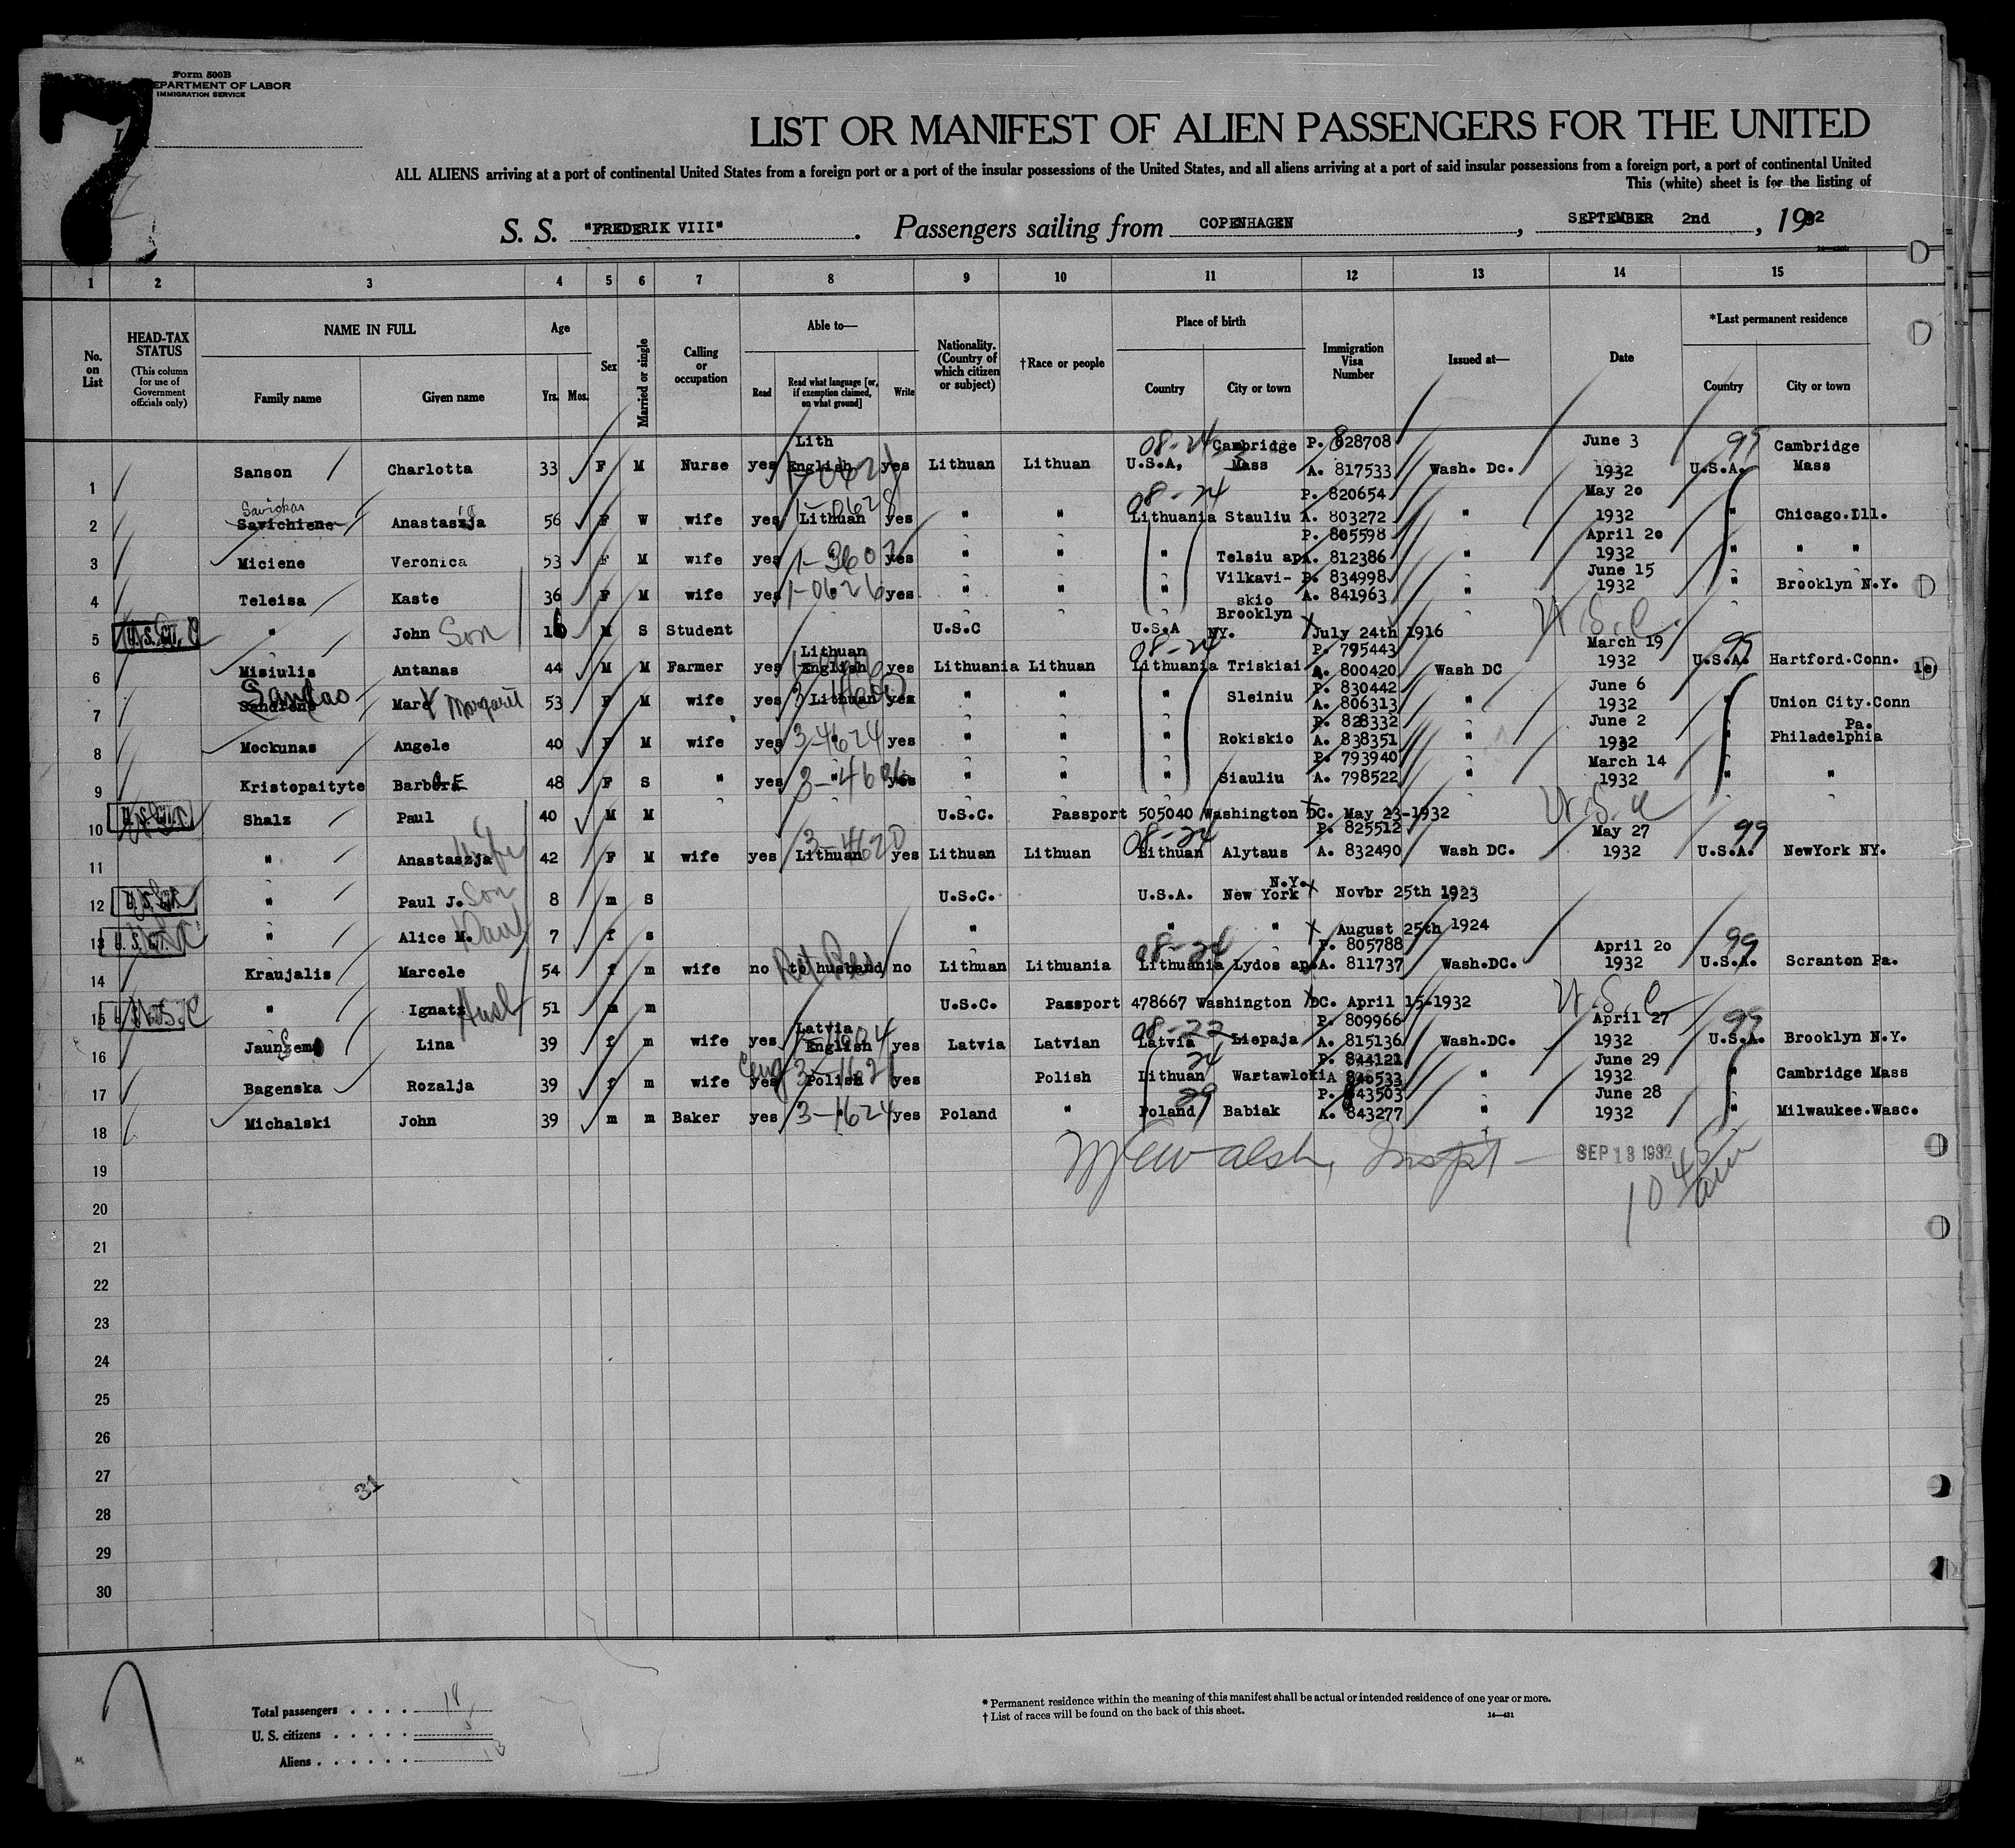 Form 500B
DEPARTMENT OF LABOR
IMMIGRATION SERVICE
7
LIST OR MANIFEST OF ALIEN PASSENGERS FOR THE UNITED
ALL ALIENS arriving at a port of continental United States from a foreign port or a port of the insular possessions of the United States, and all aliens arriving at a port of said insular possessions from a foreign port, a port of continental United
This (white) sheet is for the listing of
S. S. "FREDERIK VIII". Passengers sailing from COPENHAGEN, SEPTEMBER 2nd, 1932
1 2 3 4 5 6 7 8 9 10 11 12 13 14 15
No. on List
HEAD-TAX STATUS (This column for use of Government officials only)
NAME IN FULL Family name Given name
Age Yrs. Mos.
Sex
Married or single
Calling or occupation
Able to— Read Read what language [or, if exemption claimed, on what ground] Write
Nationality. (Country of which citizen or subject)
†Race or people
Place of birth Country City or town
Immigration Visa Number
Issued at—
Date
*Last permanent residence Country City or town
1 Sanson Charlotta 33 F M Nurse yes Lith English yes Lithuan Lithuan 08-24 U.S.A, Cambridge Mass P. 828708 A. 817533 Wash. Dc. June 3 1932 99 U.S.A. Cambridge Mass
2 Savickas Savichiene Anastaszja 56 F W wife yes Lithuan 1-0628 yes " " 08-24 Lithuania Stauliu P. 820654 A. 803272 " May 20 1932 " Chicago.Ill.
3 Miciene Veronica 53 F M wife yes " yes " " " Telsiu ap. P. 805598 A. 812386 " April 20 1932 " " "
4 Teleisa Kaste 36 F M wife yes 1-0626 yes " " " Vilkavi-skio P. 834998 A. 841963 " June 15 1932 " Brooklyn N.Y.
5 U.S.C " John Son 16 M S Student U.S.C U.S.A Brooklyn NY. July 24th 1916 U.S.C.
6 Misiulis Antanas 44 M M Farmer yes Lithuan English yes Lithuania Lithuan 08-24 Lithuania Triskiai P. 795443 A. 800420 Wash DC March 19 1932 99 U.S.A. Hartford.Conn.
7 Mare Margaret 53 F M wife yes Lithuan yes " " " Sleiniu P. 830442 A. 806313 " June 6 1932 " Union City.Conn
8 Mockunas Angele 40 F M wife yes 3-4624 yes " " " Rokiskio P. 828332 A. 838351 " June 2 1932 " Pa. Philadelphia
9 Kristopaityte Barbora 48 F S " yes " yes " " " Siauliu P. 793940 A. 798522 " March 14 1932 " "
10 Shalz Paul 40 M M U.S.C. Passport 505040 Washington DC. May 23-1932 U.S.C
11 " Anastaszja Wife 42 F M wife yes Lithuan 3-4620 yes Lithuan Lithuan 08-24 Lithuan Alytaus P. 825512 A. 832490 Wash DC. May 27 1932 99 U.S.A. NewYork NY.
12 " Paul J. Son 8 m s U.S.C. U.S.A. New York N.Y. Novbr 25th 1923
13 " Alice M. 7 f s " " " August 25th 1924
14 Kraujalis Marcele 54 f m wife no to husband no Lithuan Lithuania 08-24 Lithuania Lydos ap. P. 805788 A. 811737 Wash.DC. April 20 1932 99 U.S.A. Scranton Pa.
15 U.S.C " Ignatz Husb 51 m m U.S.C. Passport 478667 Washington DC. April 15-1932 U.S.C
16 Lina 39 f m wife yes Latvia English yes Latvia Latvian 08-22 Latvia Liepaja P. 809966 A. 815136 Wash.DC. April 27 1932 99 U.S.A. Brooklyn N.Y.
17 Bagenska Rozalja 39 f m wife yes Polish yes Polish 24 Lithuan Wartawloki P. 844121 A 846533 " June 29 1932 " Cambridge Mass
18 Michalski John 39 m m Baker yes " 3-1624 yes Poland " 29 Poland Babiak P. 843503 A. 843277 " June 28 1932 " Milwaukee.Wasc.
Walsh, Inspt SEP 13 1932
10 45 am
19
20
21
22
23
24
25
26
27
28
29
30
Total passengers . . . . 18
U. S. citizens . . . . . 5
Aliens . . . . . . 13
* Permanent residence within the meaning of this manifest shall be actual or intended residence of one year or more.
† List of races will be found on the back of this sheet.
14—431